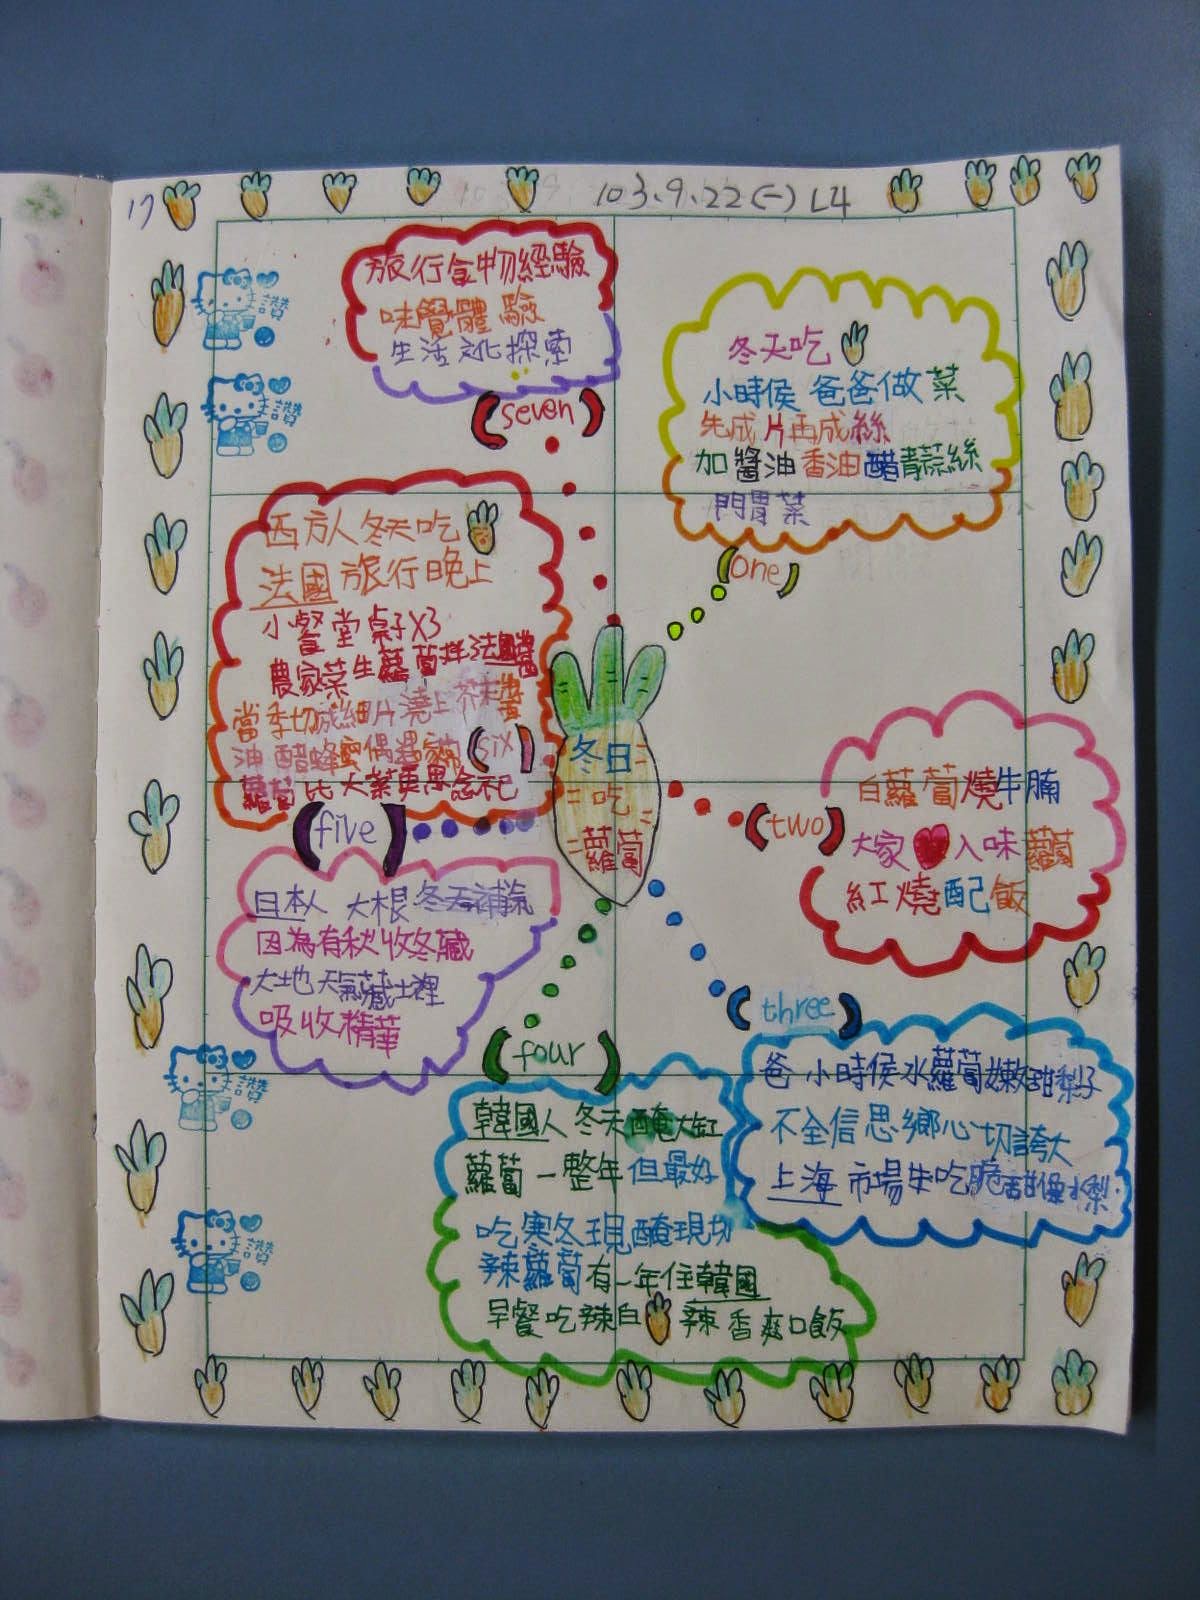 17
103.9.22(一) L4
冬日
吃
蘿蔔
(one)
冬天吃
小時侯 爸爸做菜
先成片再成絲
加醬油香油醋青蒜絲
開胃菜
(two)
白蘿蔔燒牛腩
大家 入味蘿蔔
紅燒配飯
(three)
爸小時侯水蘿蔔嫩甜梨子
不全信思鄉心切誇大
上海市場生吃脆甜像水梨
(four)
韓國人冬天醃大缸
蘿蔔一整年但最好
吃寒冬現醃現切
辣蘿蔔有一年住韓國
早餐吃辣白 辣香爽口飯
(five)
日本人 大根冬天補氣
因為有秋收冬藏
大地天氣藏土裡
吸收精華
(six)
西方人冬天吃
法國旅行晚上
小餐堂桌子X3
農家菜生蘿蔔拌法國醬
當季切成細片澆上芥末醬
油醋蜂蜜偶遇
蘿蔔比大菜更思念不已
(seven)
旅行食物經驗
味覺體驗
生活文化探索
讚
讚
讚
讚